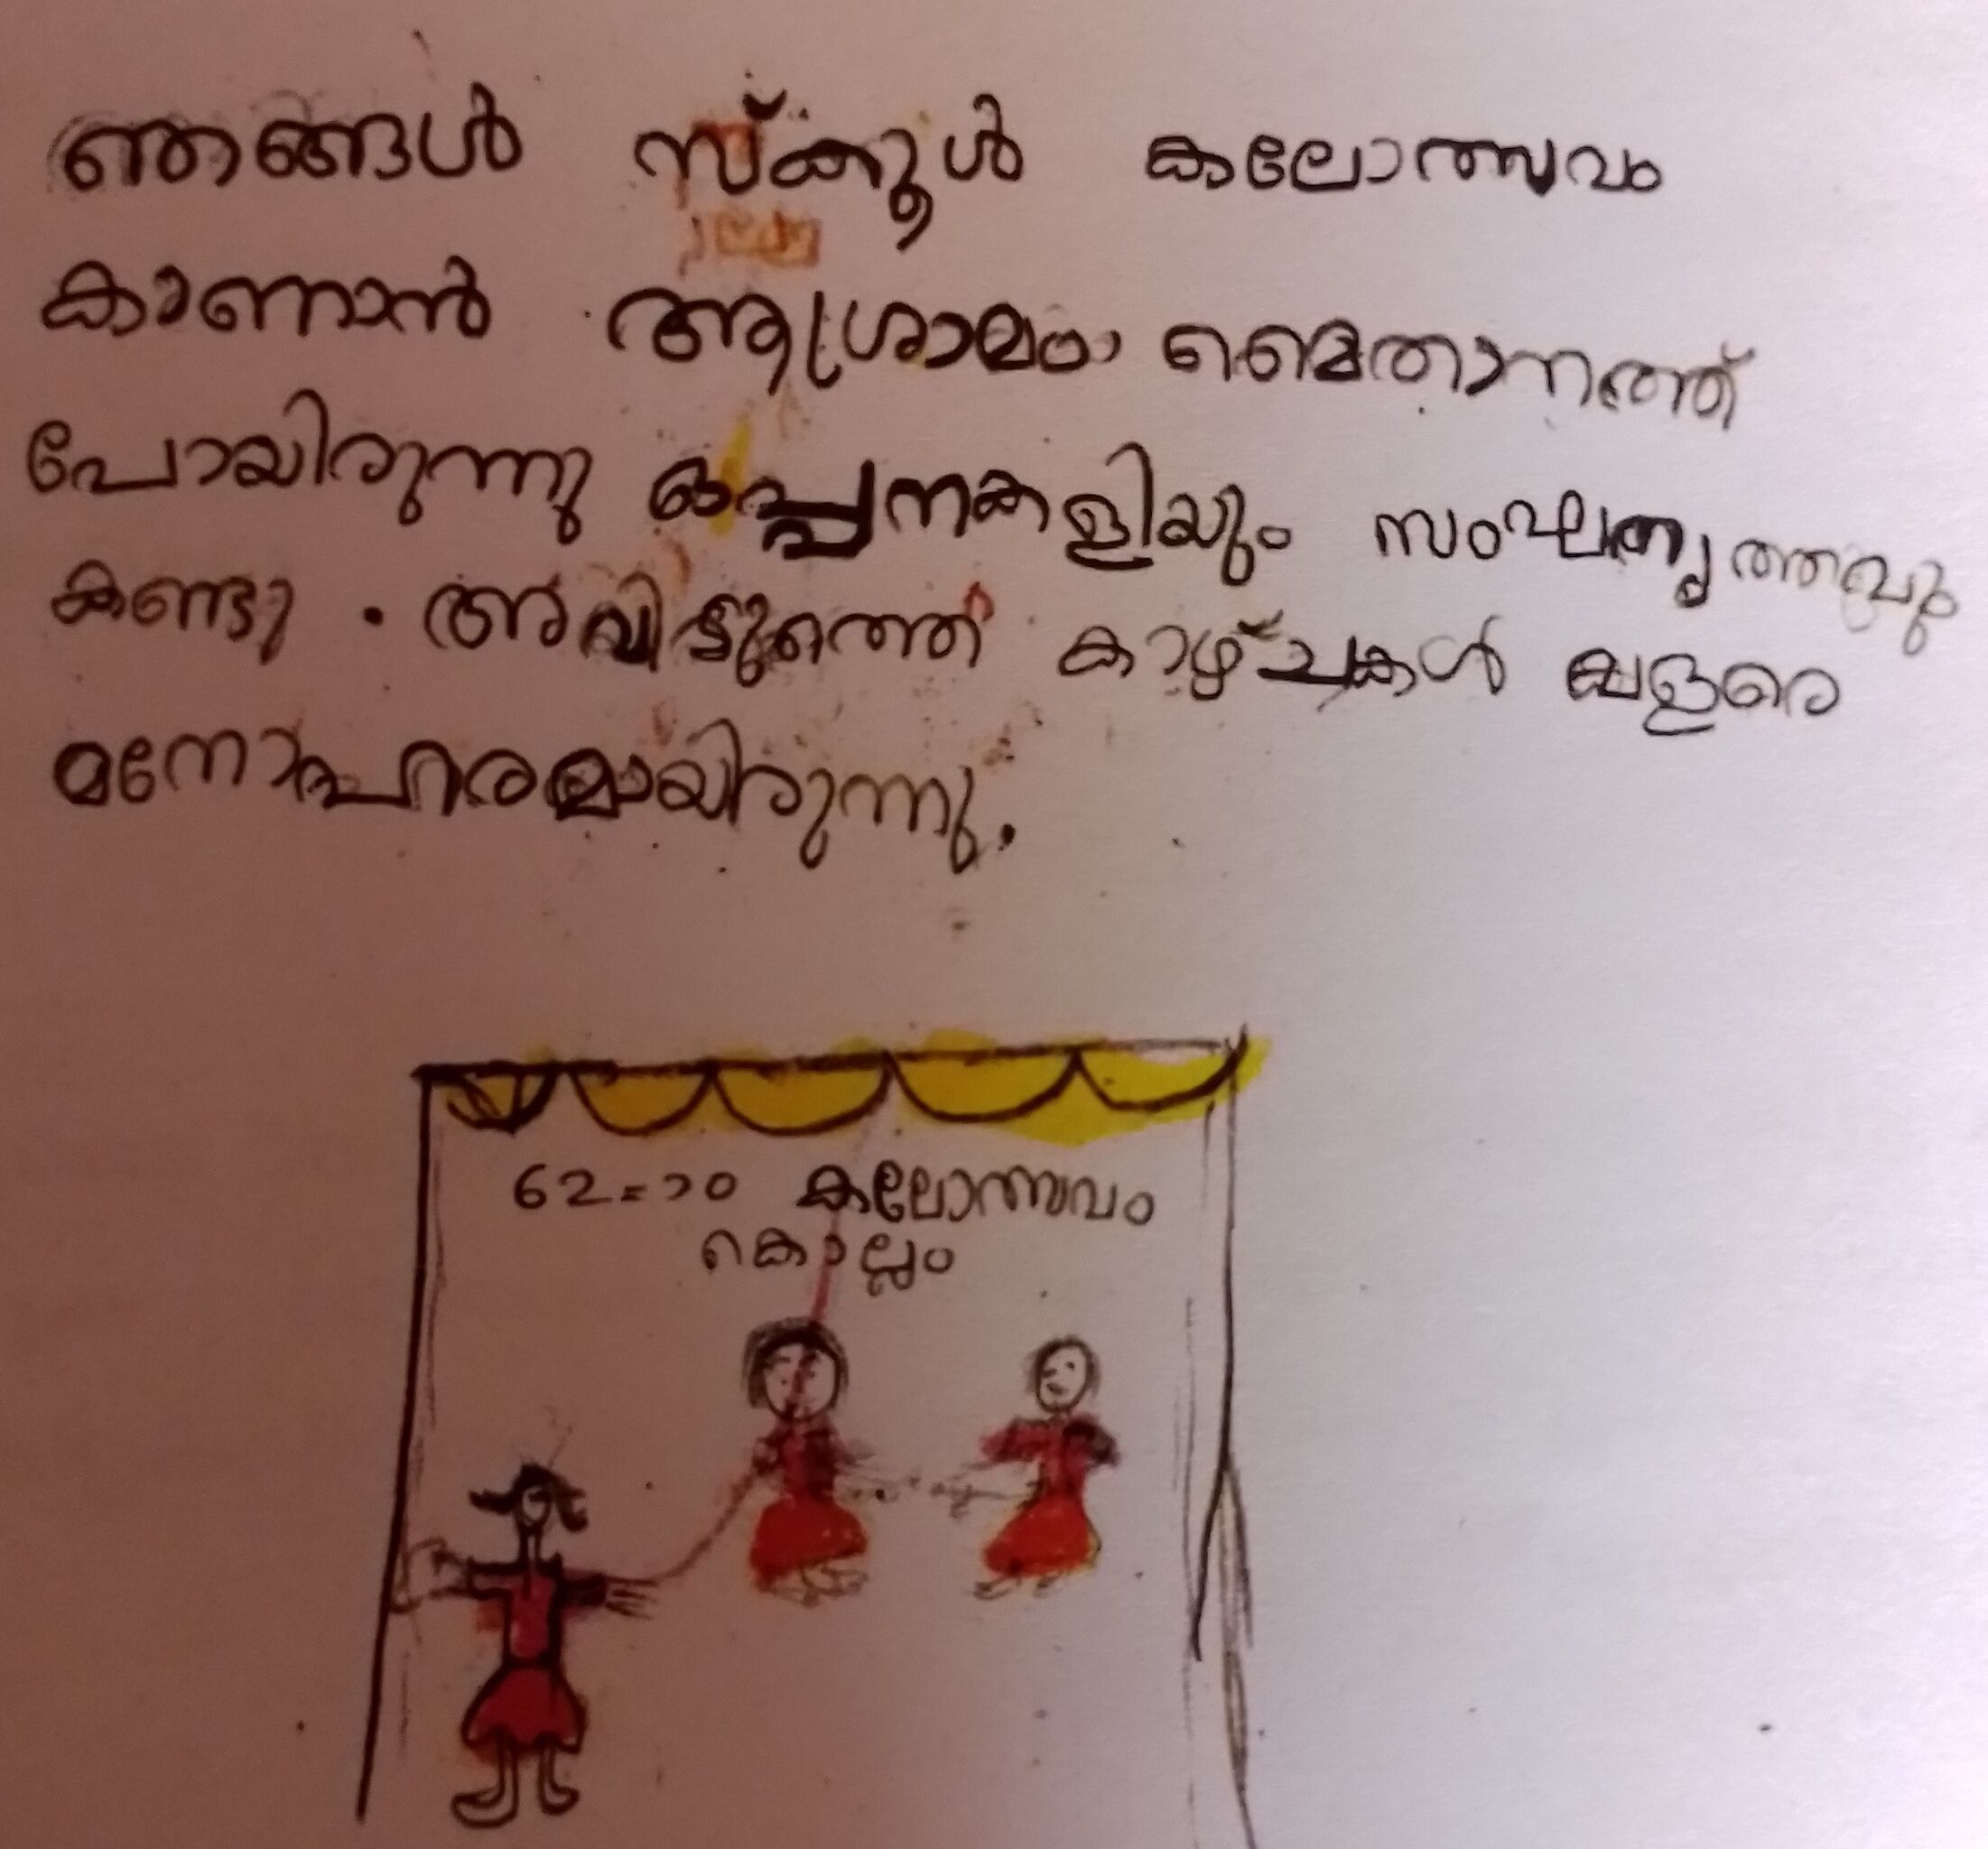 ഞങ്ങൾ സ്കൂൾ കലോത്സവം
കാണാൻ ആശ്രാമം മൈതാനത്ത്
പോയിരുന്നു ഒപ്പനകളിയും സംഘനൃത്തവും
കണ്ടു . അവിടുത്തെ കാഴ്ചകൾ വളരെ
മനോഹരമായിരുന്നു.
62-ാം കലോത്സവം
കൊല്ലം